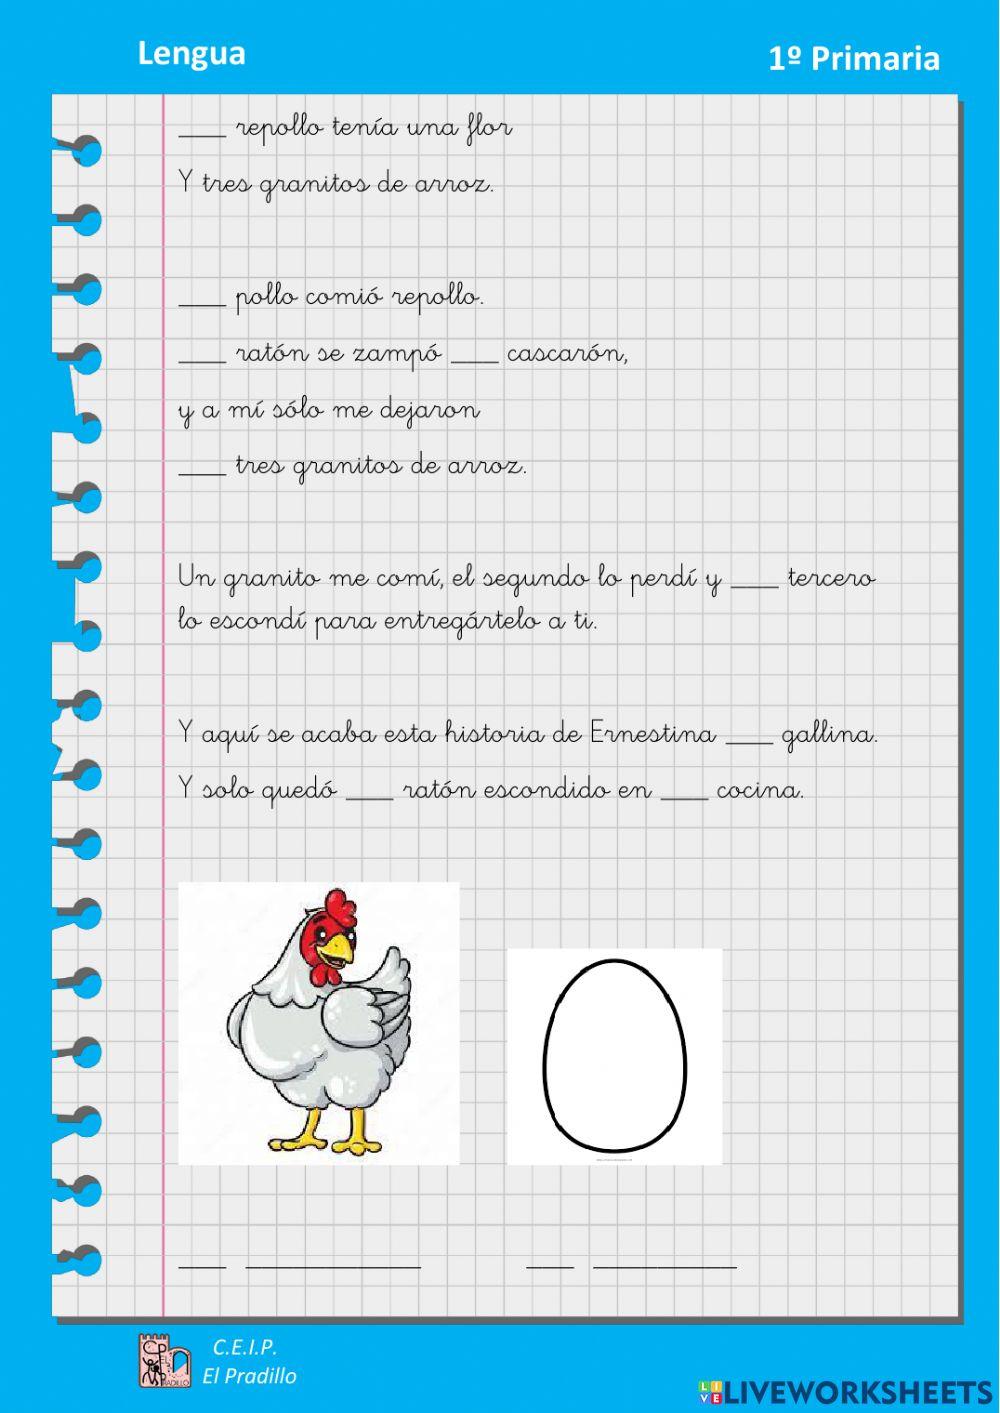 Lengua
1º Primaria
___ repollo tenía una flor
Y tres granitos de arroz.
___ pollo comió repollo.
___ ratón se zampó ___ cascarón,
y a mí sólo me dejaron
___ tres granitos de arroz.
Un granito me comí, el segundo lo perdí y ___ tercero
lo escondí para entregártelo a ti.
Y aquí se acaba esta historia de Ernestina ___ gallina.
Y solo quedó ___ ratón escondido en ___ cocina.
___ ___________ ___ _________
C.E.I.P.
El Pradillo
LIVEWORKSHEETS